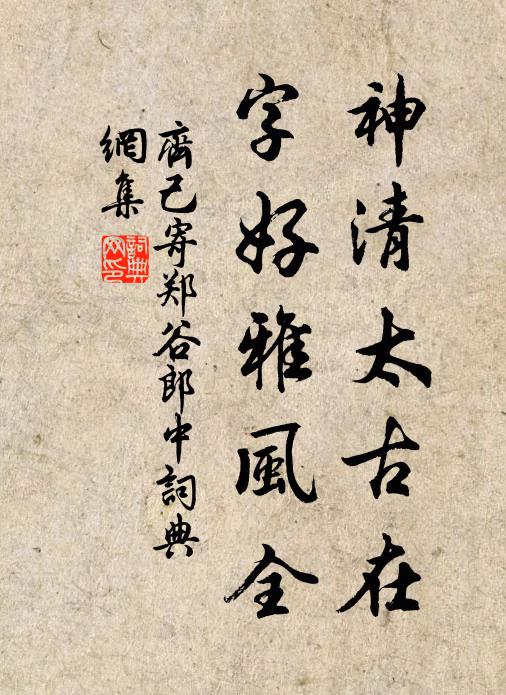 神清太古在
字好雅風全
齊己寄郑谷郎中詞典
網集
詞典
网印